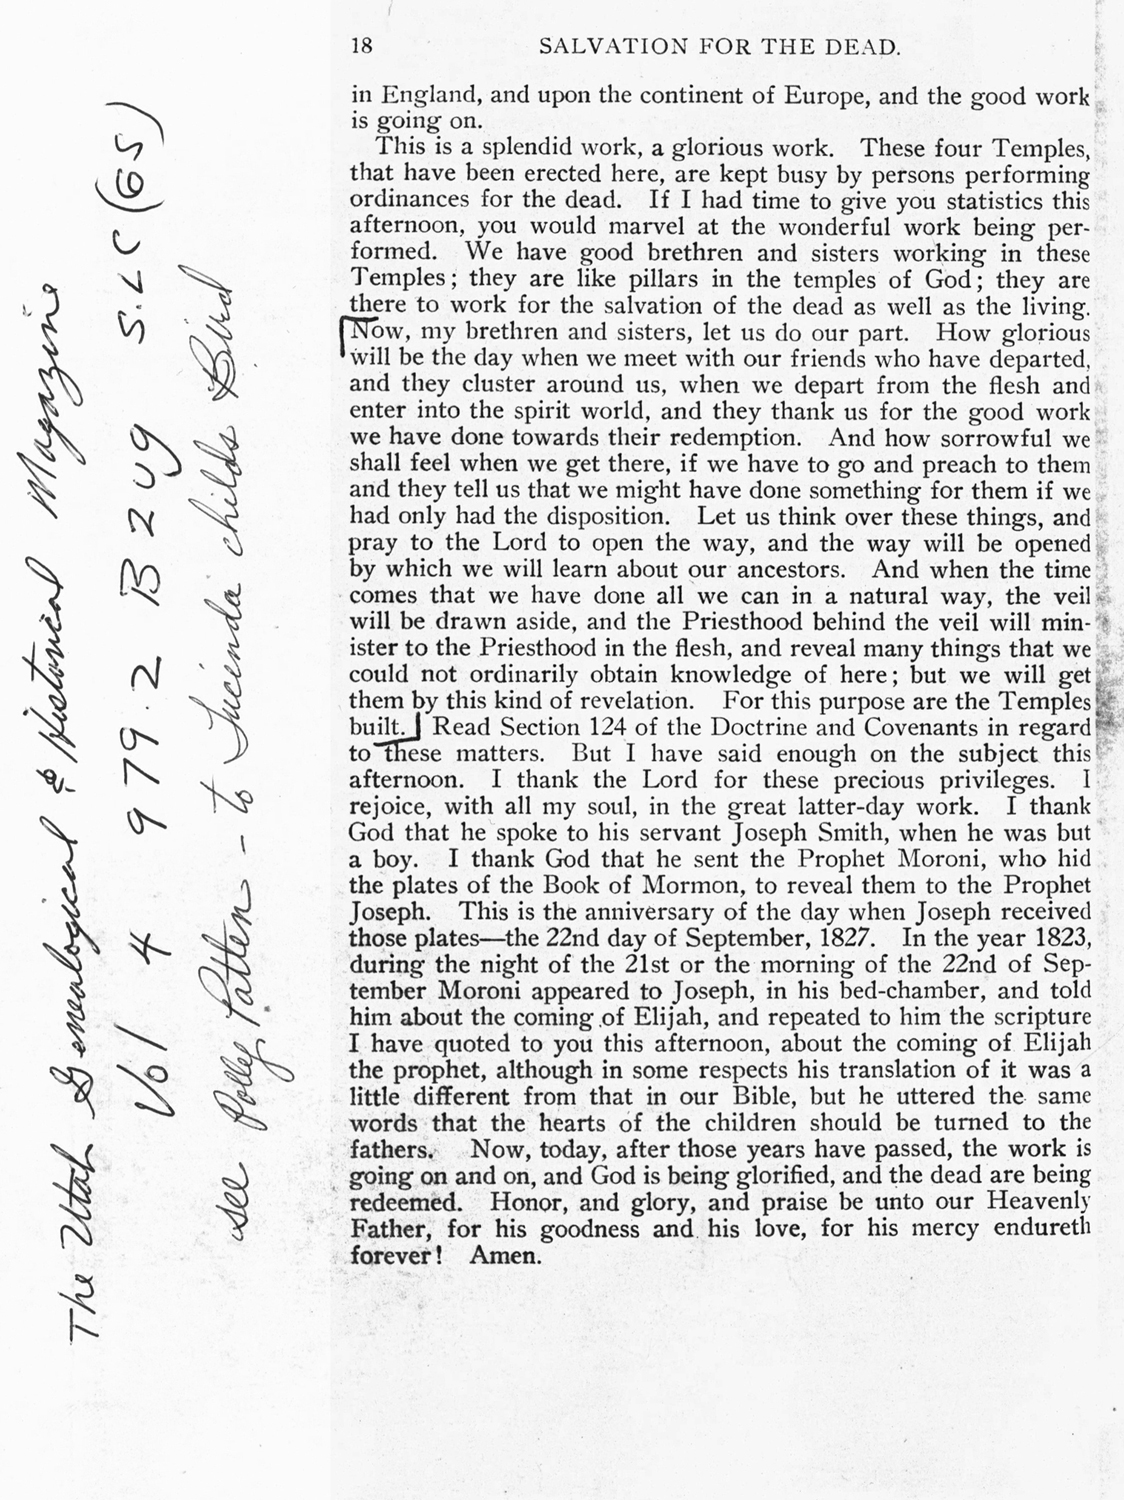 18 SALVATION FOR THE DEAD.
in England, and upon the continent of Europe, and the good work
is going on.
This is a splendid work, a glorious work. These four Temples,
that have been erected here, are kept busy by persons performing
ordinances for the dead. If I had time to give you statistics this
afternoon, you would marvel at the wonderful work being per-
formed. We have good brethren and sisters working in these
Temples; they are like pillars in the temples of God; they are
there to work for the salvation of the dead as well as the living.
Now, my brethren and sisters, let us do our part. How glorious
will be the day when we meet with our friends who have departed,
and they cluster around us, when we depart from the flesh and
enter into the spirit world, and they thank us for the good work
we have done towards their redemption. And how sorrowful we
shall feel when we get there, if we have to go and preach to them
and they tell us that we might have done something for them if we
had only had the disposition. Let us think over these things, and
pray to the Lord to open the way, and the way will be opened
by which we will learn about our ancestors. And when the time
comes that we have done all we can in a natural way, the veil
will be drawn aside, and the Priesthood behind the veil will min-
ister to the Priesthood in the flesh, and reveal many things that we
could not ordinarily obtain knowledge of here; but we will get
them by this kind of revelation. For this purpose are the Temples
built. Read Section 124 of the Doctrine and Covenants in regard
to these matters. But I have said enough on the subject this
afternoon. I thank the Lord for these precious privileges. I
rejoice, with all my soul, in the great latter-day work. I thank
God that he spoke to his servant Joseph Smith, when he was but
a boy. I thank God that he sent the Prophet Moroni, who hid
the plates of the Book of Mormon, to reveal them to the Prophet
Joseph. This is the anniversary of the day when Joseph received
those plates—the 22nd day of September, 1827. In the year 1823,
during the night of the 21st or the morning of the 22nd of Sep-
tember Moroni appeared to Joseph, in his bed-chamber, and told
him about the coming of Elijah, and repeated to him the scripture
I have quoted to you this afternoon, about the coming of Elijah
the prophet, although in some respects his translation of it was a
little different from that in our Bible, but he uttered the same
words that the hearts of the children should be turned to the
fathers. Now, today, after those years have passed, the work is
going on and on, and God is being glorified, and the dead are being
redeemed. Honor, and glory, and praise be unto our Heavenly
Father, for his goodness and his love, for his mercy endureth
forever! Amen.
The Utah Genealogical & Historical Magazine
Vol 4 979.2 B2ug S.LC (GS)
see Polly Patten - to Lucinda Childs Bird